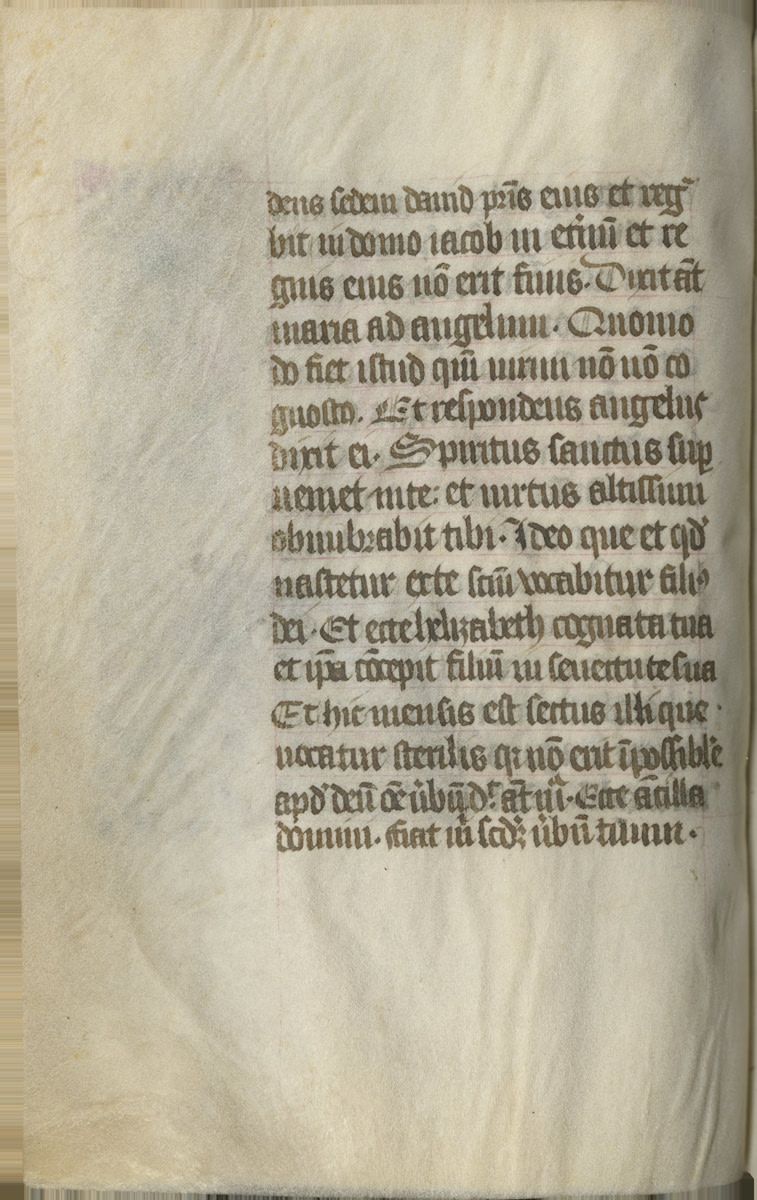 deus sedem dauid pr̄is eius et reg
bit in domo iacob in et̄nū et re
gnis eius nō erit finis. Dixit āt
maria ad angelum. Quomo
do fiet istud qm̄ uirum nō nō co
gnosco. Et respondens angelus
dixit ei. Spiritus sanctus suꝑ
ueniet inte: et uirtus altissimi
obumbrabit tibi. Ideo que et qd̛
nascetur exte sc̄m̄ vocabitur filiꝰ
dei. Et ecce helizabeth cognata tua
et ip̄a cōcepit filiū in senectute sua
Et hic mensis est sextus illi que
uocatur sterilis qꝛ nō erit īpossibile
apd̛ deū ōe ūbū d̛ āt m̄. Ecce ācilla
domini. fiat m̄ scd̛ꝫ ūbū tuum.